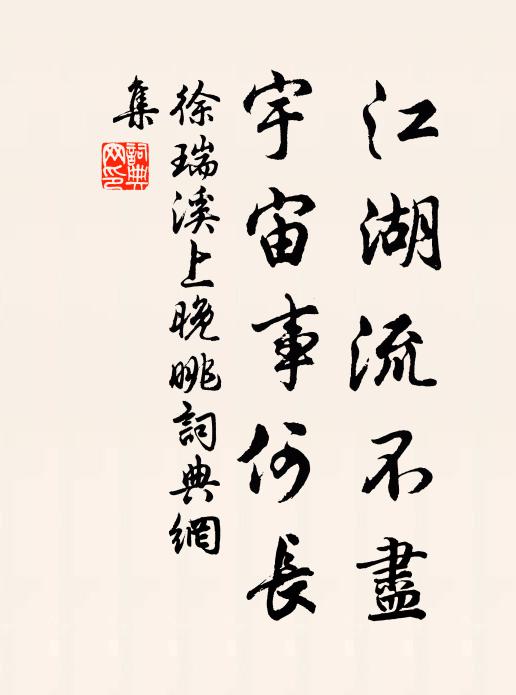 江湖流不盡
宇宙事何長
徐瑞溪上晚眺詞典網
集
詞典
网印